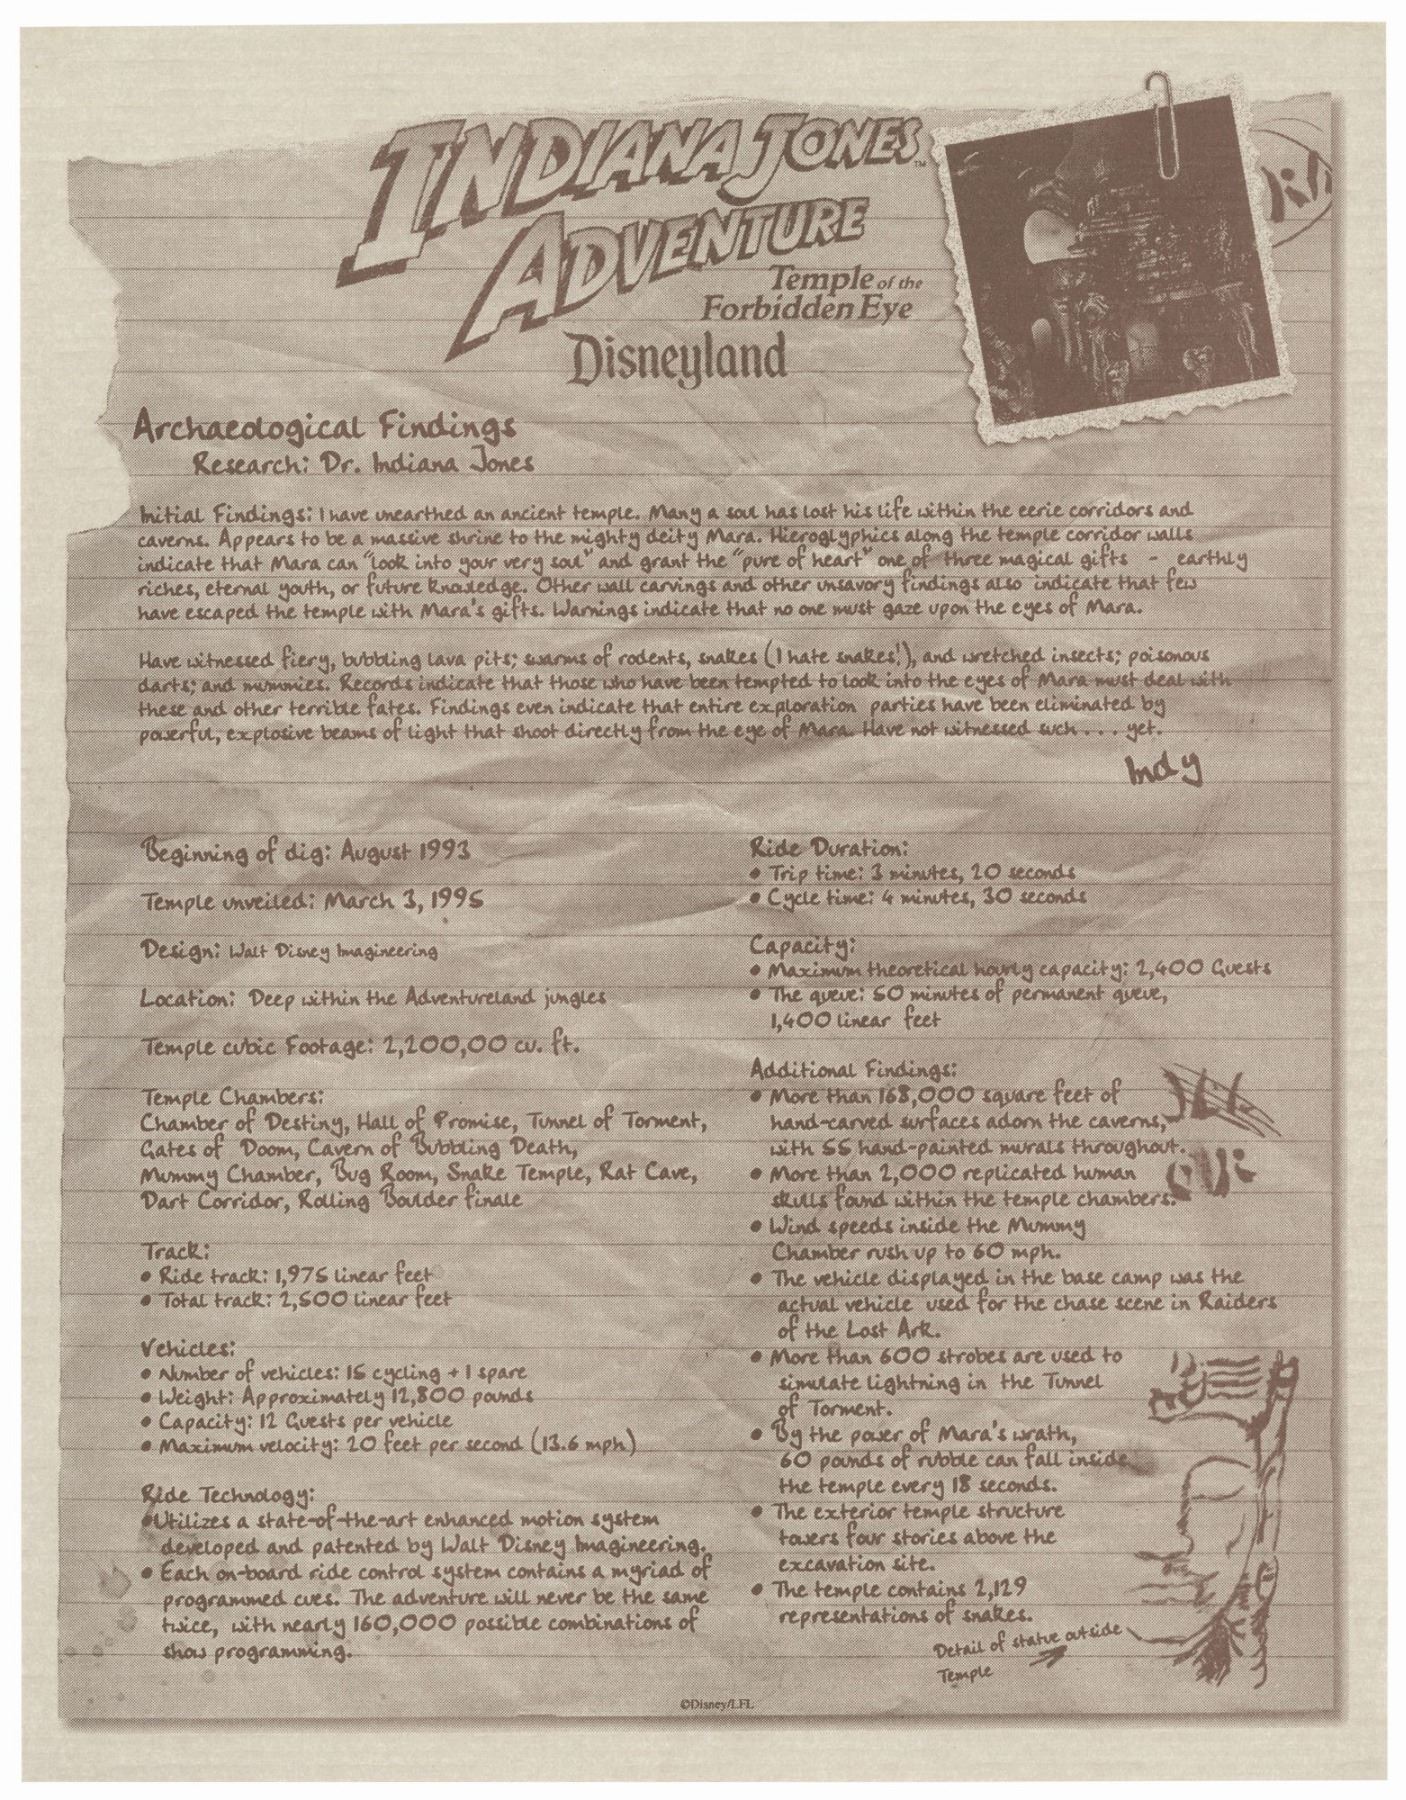 INDIANA JONES™
ADVENTURE
Temple of the
Forbidden Eye
Disneyland
Archaeological Findings
Research: Dr. Indiana Jones
Initial Findings: I have unearthed an ancient temple. Many a soul has lost his life within the eerie corridors and
caverns. Appears to be a massive shrine to the mighty deity Mara. Hieroglyphics along the temple corridor walls
indicate that Mara can "look into your very soul" and grant the "pure of heart" one of three magical gifts - earthly
riches, eternal youth, or future knowledge. Other wall carvings and other unsavory findings also indicate that few
have escaped the temple with Mara's gifts. Warnings indicate that no one must gaze upon the eyes of Mara.
Have witnessed fiery, bubbling lava pits; swarms of rodents, snakes (I hate snakes!), and wretched insects; poisonous
darts; and mummies. Records indicate that those who have been tempted to look into the eyes of Mara must deal with
these and other terrible fates. Findings even indicate that entire exploration parties have been eliminated by
powerful, explosive beams of light that shoot directly from the eye of Mara. Have not witnessed such . . . yet.
Indy
Beginning of dig: August 1993
Temple unveiled: March 3, 1995
Design: Walt Disney Imagineering
Location: Deep within the Adventureland jungles
Temple cubic Footage: 2,200,00 cu. ft.
Temple Chambers:
Chamber of Destiny, Hall of Promise, Tunnel of Torment,
Gates of Doom, Cavern of Bubbling Death,
Mummy Chamber, Bug Room, Snake Temple, Rat Cave,
Dart Corridor, Rolling Boulder finale
Track:
• Ride track: 1,975 linear feet
• Total track: 2,500 linear feet
Vehicles:
• Number of vehicles: 15 cycling + 1 spare
• Weight: Approximately 12,800 pounds
• Capacity: 12 Guests per vehicle
• Maximum velocity: 20 feet per second (13.6 mph)
Ride Technology:
• Utilizes a state-of-the-art enhanced motion system
developed and patented by Walt Disney Imagineering.
• Each on-board ride control system contains a myriad of
programmed cues. The adventure will never be the same
twice, with nearly 160,000 possible combinations of
show programming.
Ride Duration:
• Trip time: 3 minutes, 20 seconds
• Cycle time: 4 minutes, 30 seconds
Capacity:
• Maximum theoretical hourly capacity: 2,400 Guests
• The queue: 50 minutes of permanent queue,
1,400 linear feet
Additional Findings:
• More than 168,000 square feet of
hand-carved surfaces adorn the caverns,
with 55 hand-painted murals throughout.
• More than 2,000 replicated human
skulls found within the temple chambers.
• Wind speeds inside the Mummy
Chamber rush up to 60 mph.
• The vehicle displayed in the base camp was the
actual vehicle used for the chase scene in Raiders
of the Lost Ark.
• More than 600 strobes are used to
simulate lightning in the Tunnel
of Torment.
• By the power of Mara's wrath,
60 pounds of rubble can fall inside
the temple every 18 seconds.
• The exterior temple structure
towers four stories above the
excavation site.
• The temple contains 2,129
representations of snakes.
Detail of statue outside
Temple
©Disney/LFL